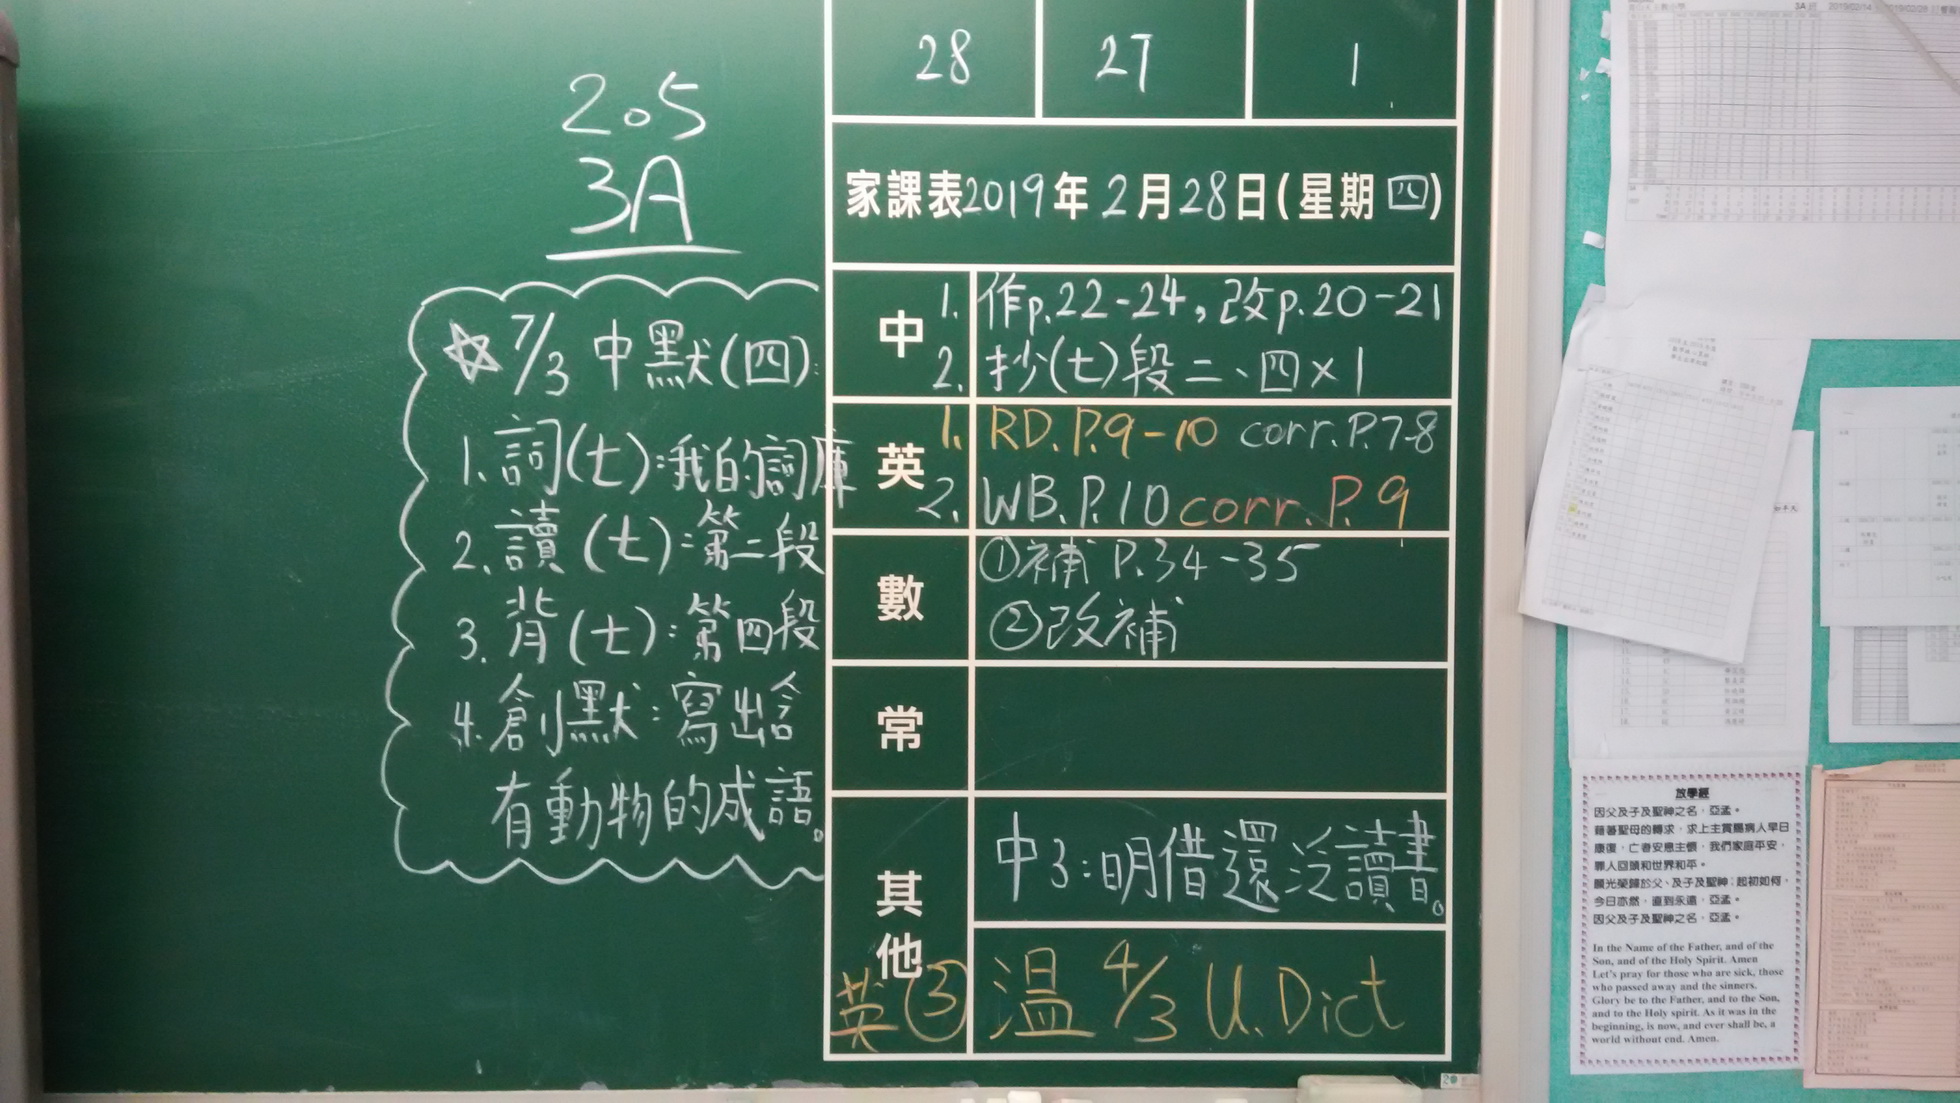 205
3A
☆ 7/3 中默(四):
1. 詞(七):我的詞庫
2. 讀(七):第二段
3. 背(七):第四段
4. 創默:寫出含
有動物的成語。
28 27 1
家課表2019年2月28日(星期四)
中
1. 作p.22-24，改p.20-21
2. 抄(七)段二、四×1
英
1. RD.P.9-10 corr.P.7-8
2. WB.P.10 corr.P.9
數
①補 P.34-35
②改補
常
其他
中3:明借還泛讀書。
英③ 温 4/3 U.Dict
3A
放學經
因父及子及聖神之名，亞孟。
藉著聖母的轉求，求上主賞賜病人早日
康復，亡者安息主懷，我們家庭平安，
罪人回頭和世界和平。
願光榮歸於父、及子及聖神；起初如何，
今日亦然，直到永遠，亞孟。
因父及子及聖神之名，亞孟。
In the Name of the Father, and of the
Son, and of the Holy Spirit. Amen
Let's pray for those who are sick, those
who passed away and the sinners.
Glory be to the Father, and to the Son,
and to the Holy spirit. As it was in the
beginning, is now, and ever shall be, a
world without end. Amen.